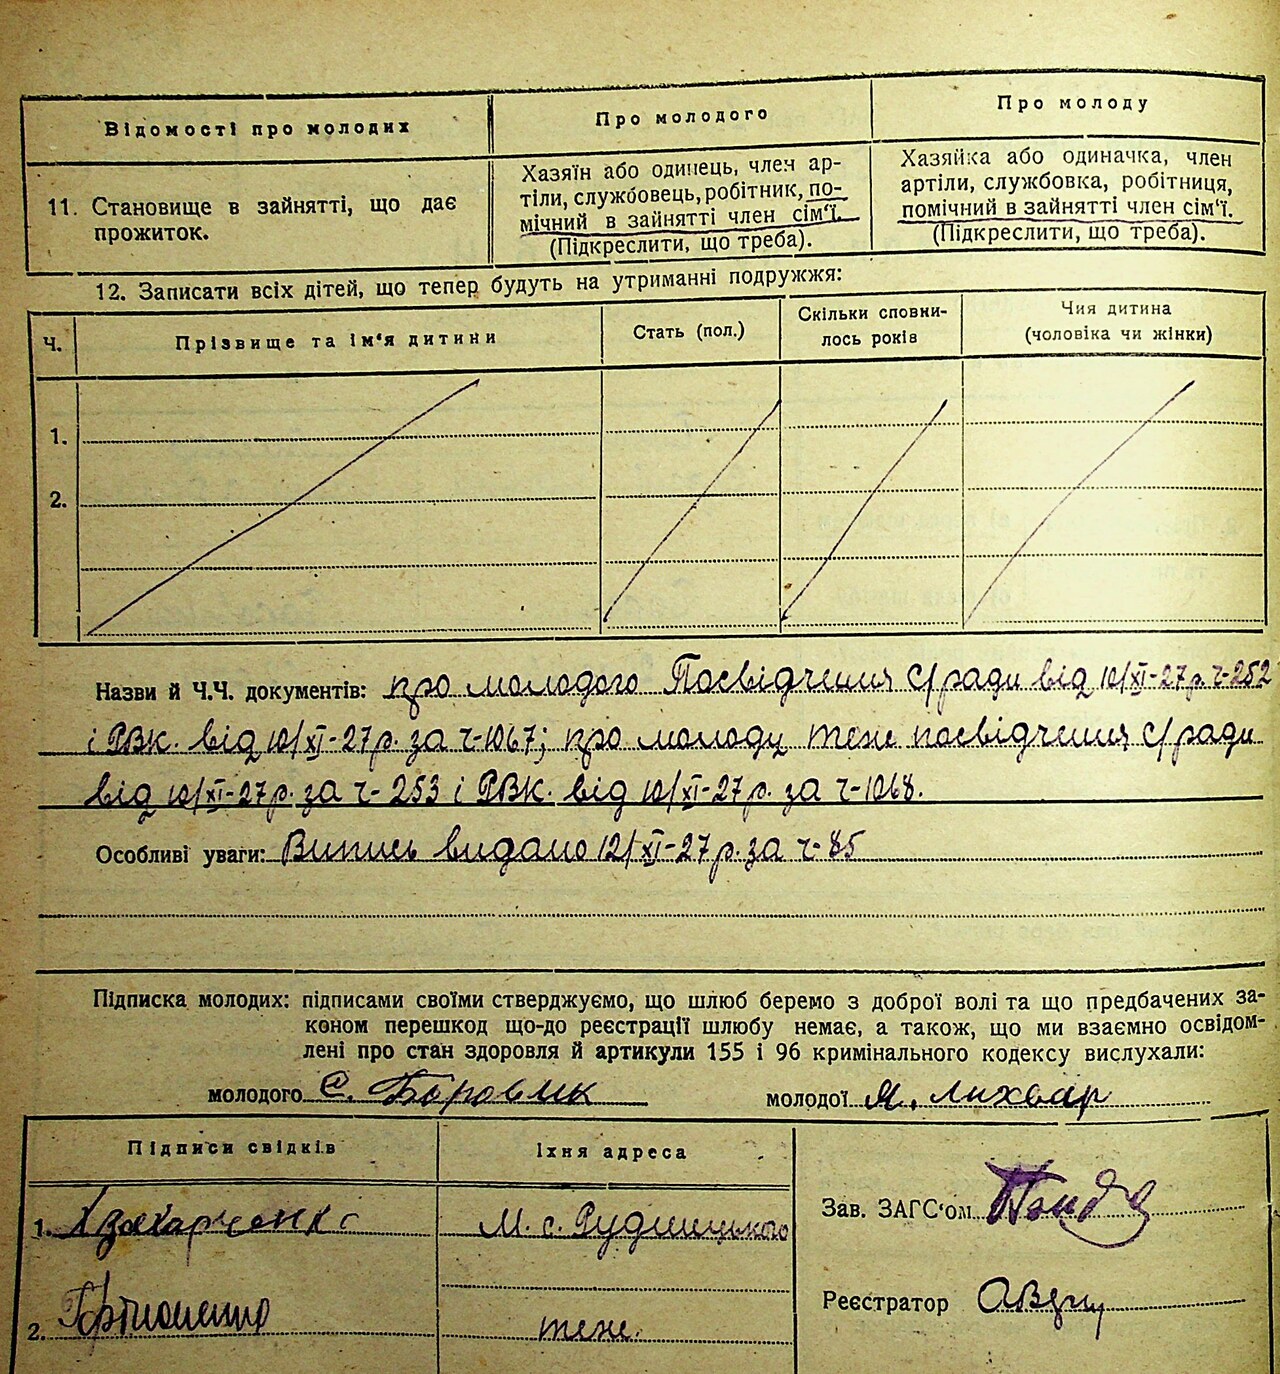 Відомості про молодих
Про молодого
Про молоду
11. Становище в зайнятті, що дає
прожиток.
Хазяїн або одинець, член ар-
тіли, службовець, робітник, по-
мічний в зайнятті член сім'ї.
(Підкреслити, що треба).
Хазяйка або одиначка, член
артіли, службовка, робітниця,
помічний в зайнятті член сім'ї.
(Підкреслити, що треба).
12. Записати всіх дітей, що тепер будуть на утриманні подружжя:
Ч.
Прізвище та ім'я дитини
Стать (пол.)
Скільки сповни-
лось років
Чия дитина
(чоловіка чи жінки)
1.
2.
Назви й Ч.Ч. документів: про молодого Посвідчення с/ради від 10/XI-27р. ч-252
і РВК. від 10/XI-27р. за ч-1067; про молоду теж посвідчення с/ради
від 10/XI-27р. за ч-253 і РВК. від 10/XI-27р. за ч-1068.
Особливі уваги: Випись видано 12/XI-27р. за ч-85
Підписка молодих: підписами своїми стверджуємо, що шлюб беремо з доброї волі та що предбачених за-
коном перешкод що-до реєстрації шлюбу немає, а також, що ми взаємно освідом-
лені про стан здоровля й артикули 155 і 96 кримінального кодексу вислухали:
молодого Є. Боровик молодої Я. Лихвар
Підписи свідків
Їхня адреса
1. Х Захарченко
М. с. Рудницького
2.
теж.
Зав. ЗАГС'ом
Реєстратор